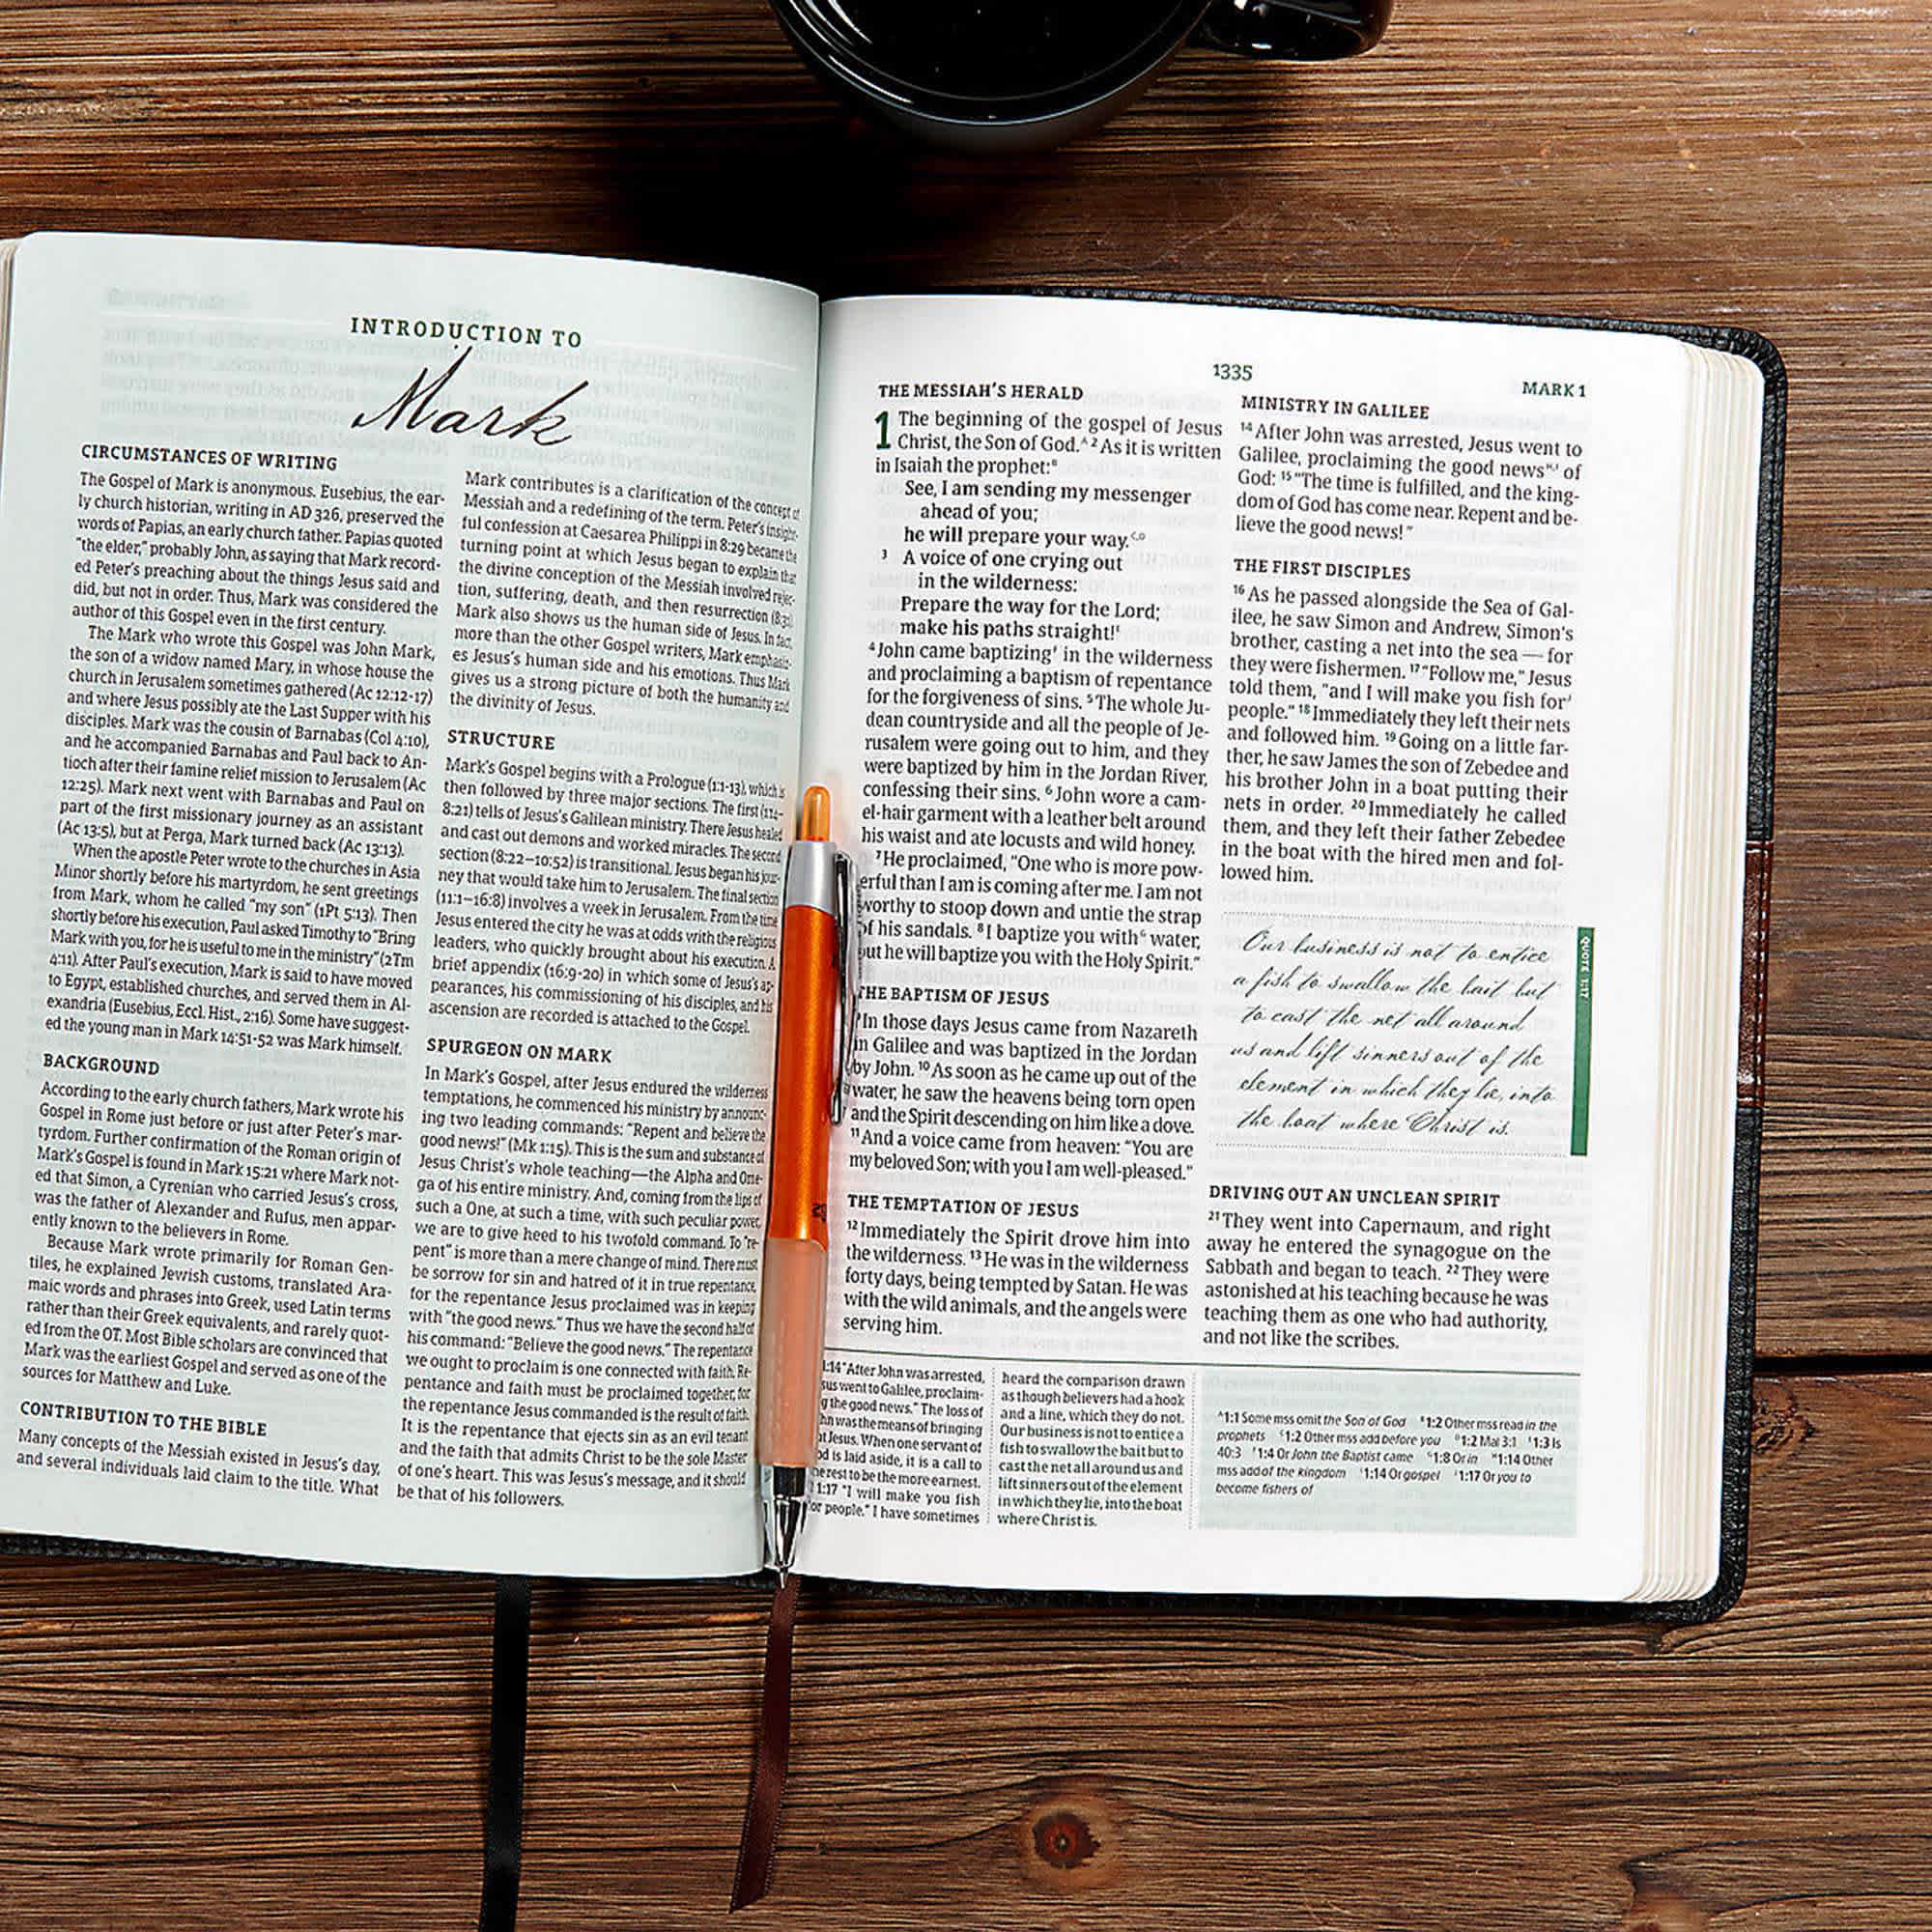 INTRODUCTION TO
Mark
CIRCUMSTANCES OF WRITING
The Gospel of Mark is anonymous. Eusebius, the ear-
ly church historian, writing in AD 326, preserved the
words of Papias, an early church father. Papias quoted
"the elder," probably John, as saying that Mark record-
ed Peter's preaching about the things Jesus said and
did, but not in order. Thus, Mark was considered the
author of this Gospel even in the first century.
The Mark who wrote this Gospel was John Mark,
the son of a widow named Mary, in whose house the
church in Jerusalem sometimes gathered (Ac 12:12-17)
and where Jesus possibly ate the Last Supper with his
disciples. Mark was the cousin of Barnabas (Col 4:10),
and he accompanied Barnabas and Paul back to An-
tioch after their famine relief mission to Jerusalem (Ac
12:25). Mark next went with Barnabas and Paul on
part of the first missionary journey as an assistant
(Ac 13:5), but at Perga, Mark turned back (Ac 13:13).
When the apostle Peter wrote to the churches in Asia
Minor shortly before his martyrdom, he sent greetings
from Mark, whom he called "my son" (1Pt 5:13). Then
shortly before his execution, Paul asked Timothy to "Bring
Mark with you, for he is useful to me in the ministry" (2Tm
4:11). After Paul's execution, Mark is said to have moved
to Egypt, established churches, and served them in Al-
exandria (Eusebius, Eccl. Hist., 2:16). Some have suggest-
ed the young man in Mark 14:51-52 was Mark himself.
BACKGROUND
According to the early church fathers, Mark wrote his
Gospel in Rome just before or just after Peter's mar-
tyrdom. Further confirmation of the Roman origin of
Mark's Gospel is found in Mark 15:21 where Mark not-
ed that Simon, a Cyrenian who carried Jesus's cross,
was the father of Alexander and Rufus, men appar-
ently known to the believers in Rome.
Because Mark wrote primarily for Roman Gen-
tiles, he explained Jewish customs, translated Ara-
maic words and phrases into Greek, used Latin terms
rather than their Greek equivalents, and rarely quot-
ed from the OT. Most Bible scholars are convinced that
Mark was the earliest Gospel and served as one of the
sources for Matthew and Luke.
CONTRIBUTION TO THE BIBLE
Many concepts of the Messiah existed in Jesus's day,
and several individuals laid claim to the title. What
Mark contributes is a clarification of the concept of
Messiah and a redefining of the term. Peter's insight-
ful confession at Caesarea Philippi in 8:29 became the
turning point at which Jesus began to explain that
the divine conception of the Messiah involved rejec-
tion, suffering, death, and then resurrection (8:31
Mark also shows us the human side of Jesus. In fact,
more than the other Gospel writers, Mark emphasiz-
es Jesus's human side and his emotions. Thus Mark
gives us a strong picture of both the humanity and
the divinity of Jesus.
STRUCTURE
Mark's Gospel begins with a Prologue (1:1-13), which is
then followed by three major sections. The first (1:14-
8:21) tells of Jesus's Galilean ministry. There Jesus healed
and cast out demons and worked miracles. The second
section (8:22–10:52) is transitional. Jesus began his jour-
ney that would take him to Jerusalem. The final section
(11:1–16:8) involves a week in Jerusalem. From the time
Jesus entered the city he was at odds with the religious
leaders, who quickly brought about his execution. A
brief appendix (16:9-20) in which some of Jesus's ap-
pearances, his commissioning of his disciples, and his
ascension are recorded is attached to the Gospel.
SPURGEON ON MARK
In Mark's Gospel, after Jesus endured the wilderness
temptations, he commenced his ministry by announc-
ing two leading commands: "Repent and believe the
good news!" (Mk 1:15). This is the sum and substance of
Jesus Christ's whole teaching—the Alpha and Ome-
ga of his entire ministry. And, coming from the lips of
such a One, at such a time, with such peculiar power,
we are to give heed to his twofold command. To "re-
pent" is more than a mere change of mind. There must
be sorrow for sin and hatred of it in true repentance,
for the repentance Jesus proclaimed was in keeping
with "the good news." Thus we have the second half of
his command: "Believe the good news." The repentance
we ought to proclaim is one connected with faith. Re-
pentance and faith must be proclaimed together, for
the repentance Jesus commanded is the result of faith.
It is the repentance that ejects sin as an evil tenant
and the faith that admits Christ to be the sole Master
of one's heart. This was Jesus's message, and it should
be that of his followers.
1335
MARK 1
THE MESSIAH'S HERALD
1 The beginning of the gospel of Jesus
Christ, the Son of God.ᴬ ² As it is written
in Isaiah the prophet:ᴮ
See, I am sending my messenger
ahead of you;
he will prepare your way.ᶜ,ᴰ
³ A voice of one crying out
in the wilderness:
Prepare the way for the Lord;
make his paths straight!ᴱ
⁴ John came baptizingᶠ in the wilderness
and proclaiming a baptism of repentance
for the forgiveness of sins. ⁵ The whole Ju-
dean countryside and all the people of Je-
rusalem were going out to him, and they
were baptized by him in the Jordan River,
confessing their sins. ⁶ John wore a cam-
el-hair garment with a leather belt around
his waist and ate locusts and wild honey.
⁷ He proclaimed, "One who is more pow-
erful than I am is coming after me. I am not
worthy to stoop down and untie the strap
of his sandals. ⁸ I baptize you withᴳ water,
but he will baptize you with the Holy Spirit."
THE BAPTISM OF JESUS
In those days Jesus came from Nazareth
in Galilee and was baptized in the Jordan
by John. ¹⁰ As soon as he came up out of the
water, he saw the heavens being torn open
and the Spirit descending on him like a dove.
¹¹ And a voice came from heaven: "You are
my beloved Son; with you I am well-pleased."
THE TEMPTATION OF JESUS
¹² Immediately the Spirit drove him into
the wilderness. ¹³ He was in the wilderness
forty days, being tempted by Satan. He was
with the wild animals, and the angels were
serving him.
MINISTRY IN GALILEE
¹⁴ After John was arrested, Jesus went to
Galilee, proclaiming the good newsᴴ,ᴵ of
God: ¹⁵ "The time is fulfilled, and the king-
dom of God has come near. Repent and be-
lieve the good news!"
THE FIRST DISCIPLES
¹⁶ As he passed alongside the Sea of Gal-
ilee, he saw Simon and Andrew, Simon's
brother, casting a net into the sea — for
they were fishermen. ¹⁷ "Follow me," Jesus
told them, "and I will make you fish forᴶ
people." ¹⁸ Immediately they left their nets
and followed him. ¹⁹ Going on a little far-
ther, he saw James the son of Zebedee and
his brother John in a boat putting their
nets in order. ²⁰ Immediately he called
them, and they left their father Zebedee
in the boat with the hired men and fol-
lowed him.
Our business is not to entice
a fish to swallow the bait but
to cast the net all around
us and lift sinners out of the
element in which they lie, into
the boat where Christ is.
QUOTE 1:17
DRIVING OUT AN UNCLEAN SPIRIT
²¹ They went into Capernaum, and right
away he entered the synagogue on the
Sabbath and began to teach. ²² They were
astonished at his teaching because he was
teaching them as one who had authority,
and not like the scribes.
1:14 "After John was arrested,
sus went to Galilee, proclaim-
g the good news." The loss of
hn was the means of bringing
Jesus. When one servant of
od is laid aside, it is a call to
he rest to be the more earnest.
1:17 "I will make you fish
or people." I have sometimes
heard the comparison drawn
as though believers had a hook
and a line, which they do not.
Our business is not to entice a
fish to swallow the bait but to
cast the net all around us and
lift sinners out of the element
in which they lie, into the boat
where Christ is.
ᴬ1:1 Some mss omit the Son of God ᴮ1:2 Other mss read in the
prophets ᶜ1:2 Other mss add before you ᴰ1:2 Mal 3:1 ᴱ1:3 Is
40:3 ᶠ1:4 Or John the Baptist came ᴳ1:8 Or in ᴴ1:14 Other
mss add of the kingdom ᴵ1:14 Or gospel ᴶ1:17 Or you to
become fishers of